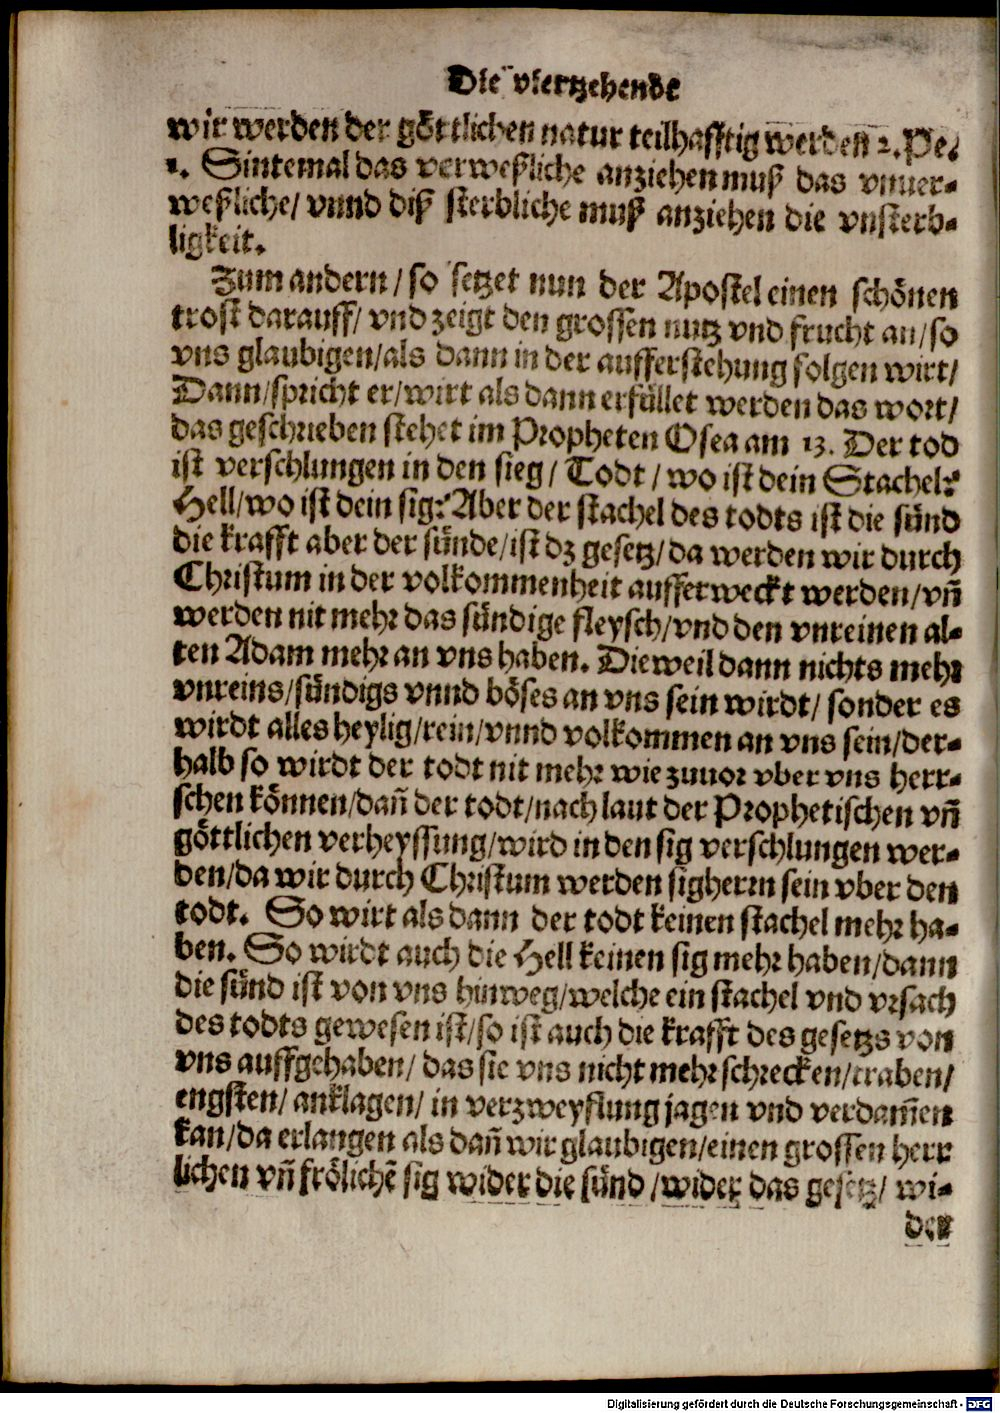 Die viertzehende
wir werden der göttlichen natur teilhafftig werden 2. Pe.
1. Sintemal das verweßliche anziehen muß das vnuer-
weßliche/ vnnd diß sterbliche muß anziehen die vnsterb-
ligkeit.
Zum andern/ so setzet nun der Apostel einen schönen
trost darauff/ vnd zeigt den grossen nutz vnd frucht an/ so
vns glaubigen/ als dann in der aufferstehung folgen wirt/
Dann/ spricht er/ wirt als dann erfüllet werden das wort/
das geschrieben stehet im Propheten Osea am 13. Der tod
ist verschlungen in den sieg/ Todt/ wo ist dein Stachel?
Hell/ wo ist dein sig? Aber der stachel des todts ist die sünd
die krafft aber der sünde/ ist dz gesetz/ da werden wir durch
Christum in der volkommenheit aufferweckt werden/ vñ
werden nit mehr das sündige fleysch/ vnd den vnreinen al-
ten Adam mehr an vns haben. Dieweil dann nichts mehr
vnreins/ sündigs vnnd böses an vns sein wirdt/ sonder es
wirdt alles heylig/ rein/ vnnd volkommen an vns sein/ der-
halb so wirdt der todt nit mehr wie zuuor vber vns herr-
schen können/ dañ der todt/ nach laut der Prophetischen vñ
göttlichen verheyssung/ wird in den sig verschlungen wer-
den/ da wir durch Christum werden sigherrn sein vber den
todt. So wirt als dann der todt keinen stachel mehr ha-
ben. So wirdt auch die Hell keinen sig mehr haben/ dann
die sünd ist von vns hinweg/ welche ein stachel vnd vrsach
des todts gewesen ist/ so ist auch die krafft des gesetzs von
vns auffgehaben/ das sie vns nicht mehr schrecken/ traben/
engsten/ anklagen/ in verzweyflung jagen vnd verdam̄en
kan/ da erlangen als dañ wir glaubigen/ einen grossen herr
lichen vñ frölichē sig wider die sünd/ wider das gesetz/ wi-
der
Digitalisierung gefördert durch die Deutsche Forschungsgemeinschaft - DFG